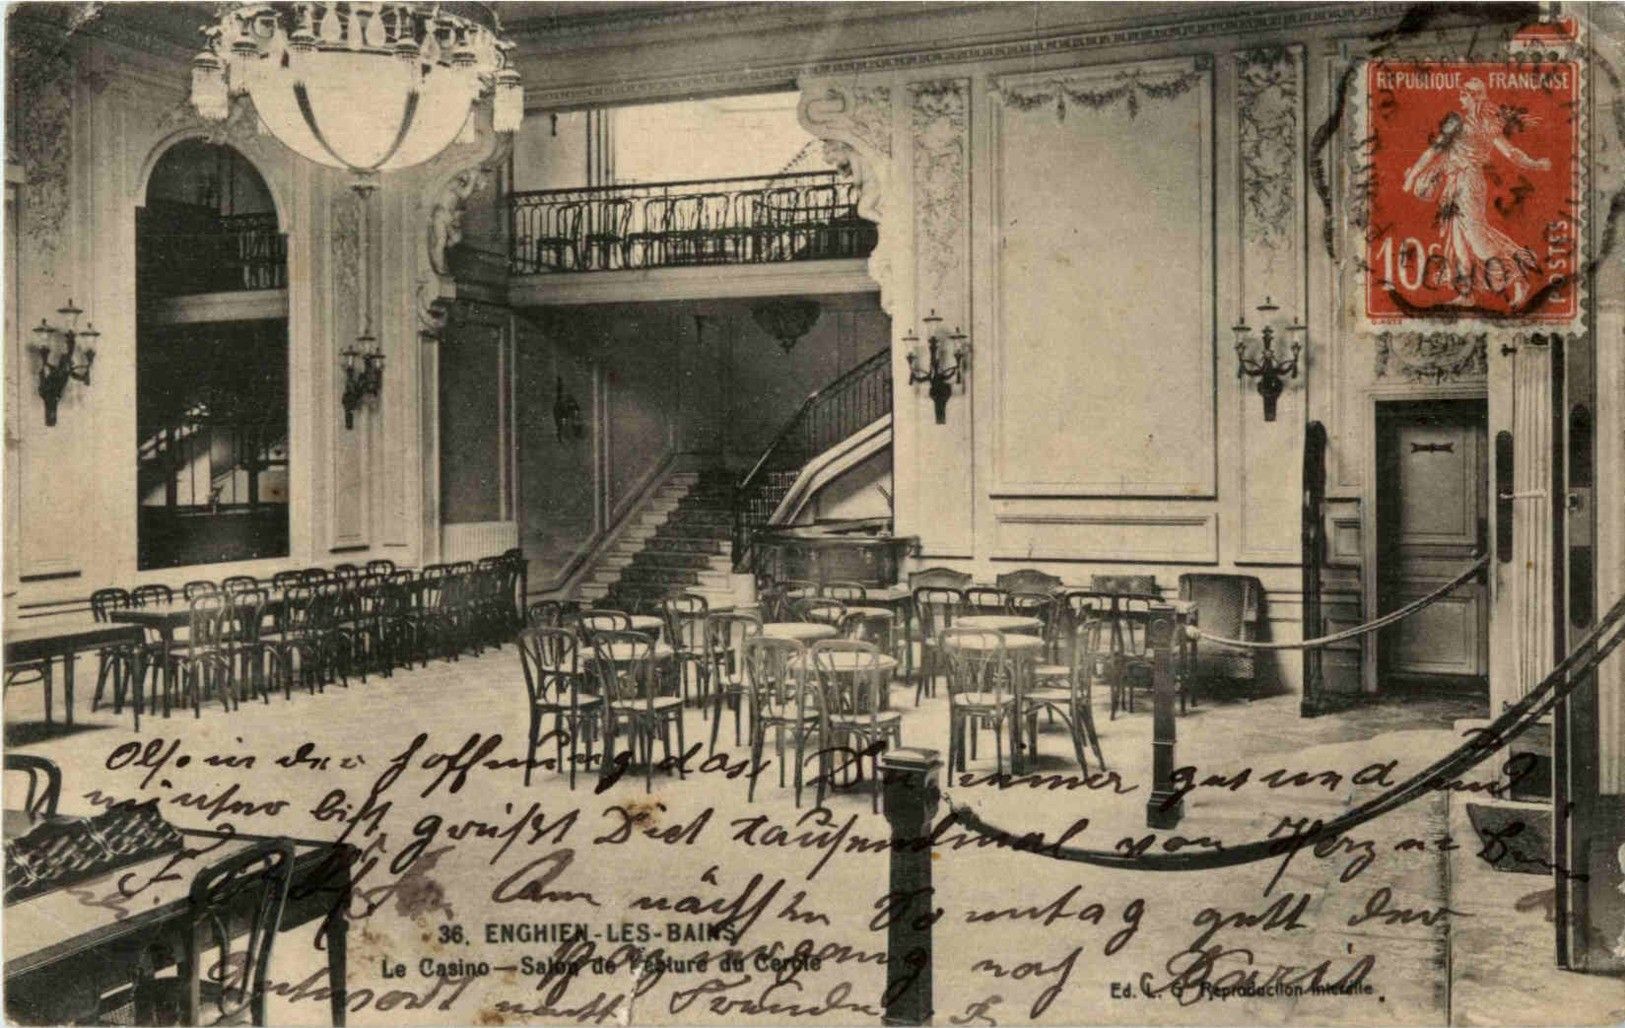 REPUBLIQUE FRANÇAISE
10c
POSTES
NORD
Also in der Hoffnung dass Du immer gesund und
munter bist, grüßt Dich tausendmal von Herzen
Am nächsten Sonntag geht der
nach Paris
Antwort
36. ENGHIEN-LES-BAINS
Le Casino — Salon de Lecture du Cercle
Ed. L. G. Reproduction interdite.